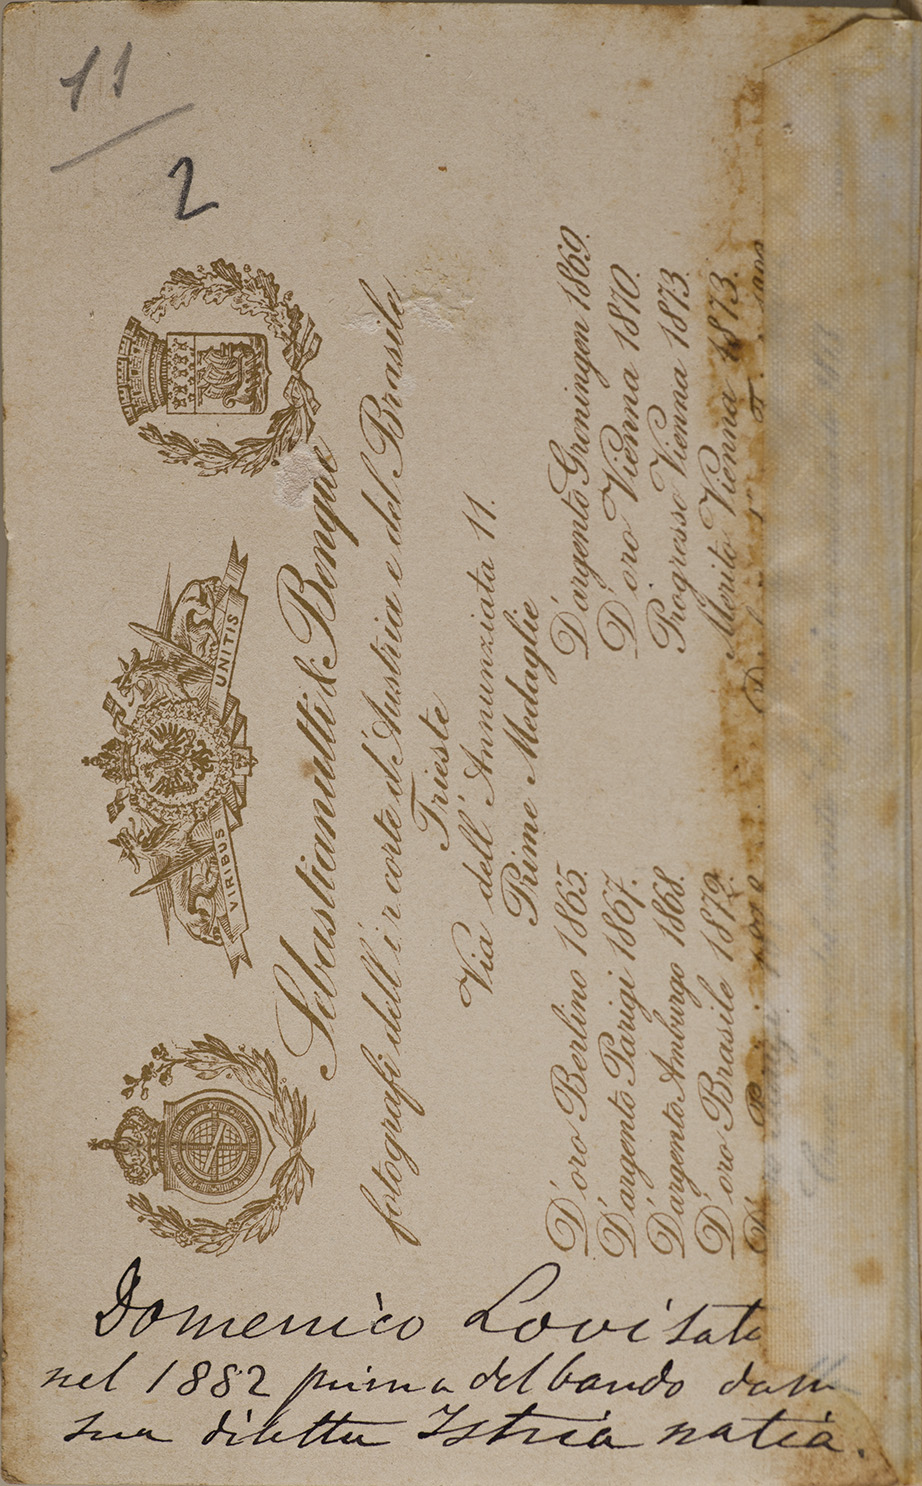 11
2
VIRIBUS UNITIS
Sebastianutti & Benque
fotografi dell' i r corte d'Austria e del Brasile
Trieste
Via dell' Annunziata 11.
Prime Medaglie
D'oro Berlino 1865. D'argento Groningen 1869.
D'argento Parigi 1867. D'oro Vienna 1870.
D'argento Amburgo 1868. Progresso Vienna 1873.
D'oro Brasile 1872. Merito Vienna 1873.
Domenico Lovisato
nel 1882 prima del bando dalla
sua diletta Istria natia.